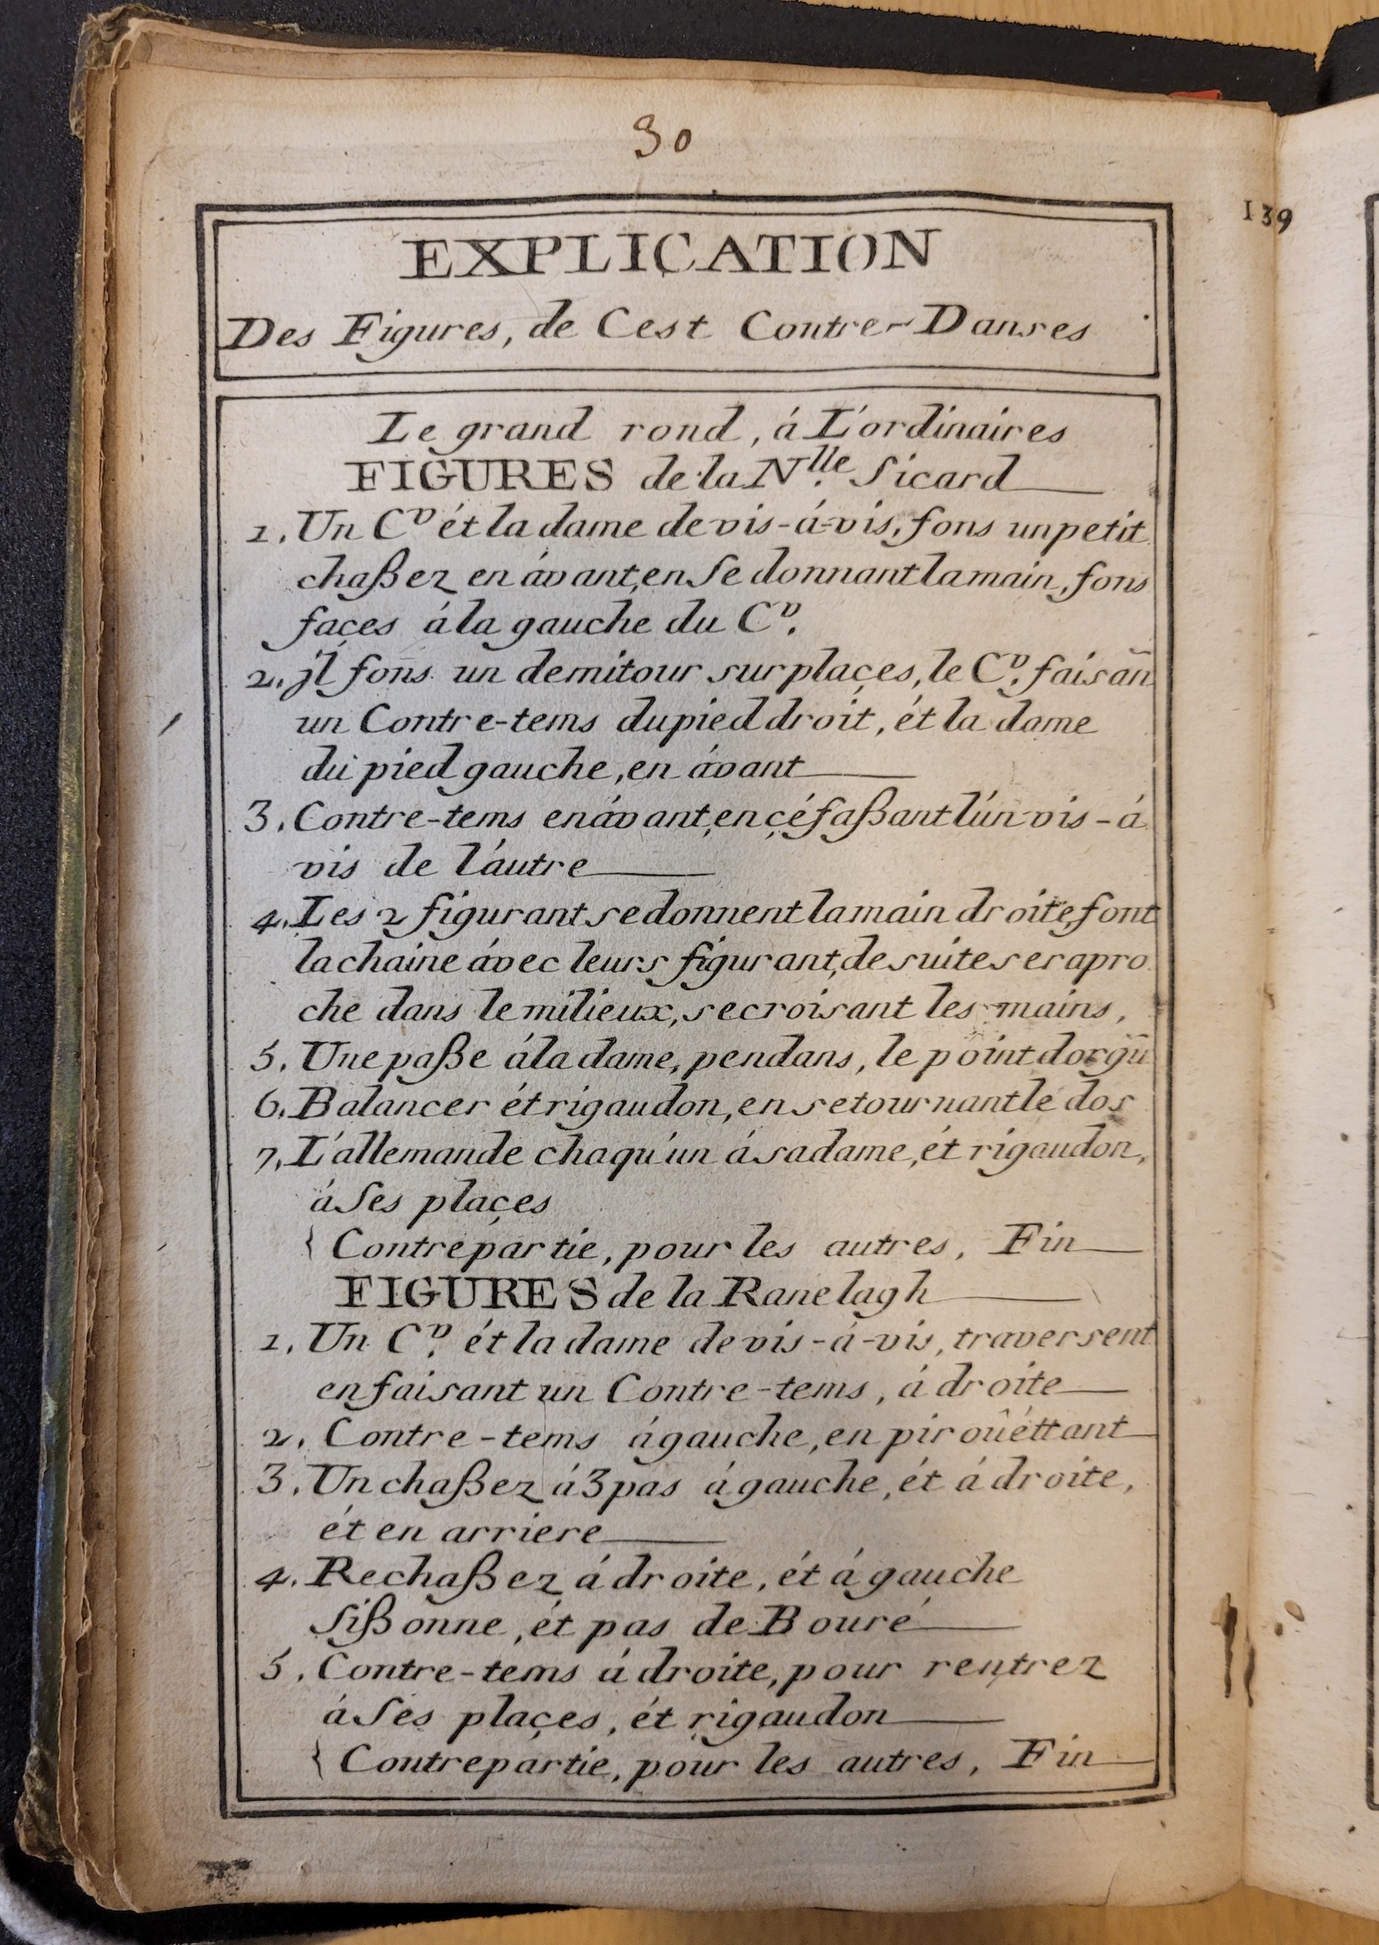 30
139
EXPLICATION
Des Figures, de Cest Contre-Danses
Le grand rond, á L'ordinaires
FIGURES de la Nlle. Sicard
1. Un Cv ét la dame de vis-á-vis, fons un petit
chaßez en ávant, en Se donnant la main, fons
façes á la gauche du Cv.
2. jl fons un demitour sur plaçes, le Cv. faisañ
un Contre-tems du pied droit, ét la dame
du pied gauche, en ávant
3. Contre-tems en ávant, en çéfaßant l'ún vis-á
vis de l'áutre
4. Les 2 figurant se donnent la main droite, font
la chaine ávec leurs figurant, de suite se rapro
che dans le milieux, se croisant les mains,
5. Une paße á la dame, pendans, le point dorgũ
6. Balancer ét rigaudon, en se tournant le dos
7. L'allemande chaqu'un á sa dame, ét rigaudon,
á Ses plaçes
{ Contrepartie, pour les autres, Fin
FIGURES de la Ranelagh
1. Un Cv. ét la dame de vis-á-vis, traversent
en faisant un Contre-tems, á droite
2. Contre-tems á gauche, en piroûéttant
3. Un chaßez á 3 pas á gauche, ét á droite,
ét en arriere
4. Rechaßez á droite, ét á gauche
Sißonne, ét pas de Bouré
5. Contre-tems á droite, pour rentrez
á Ses plaçes, ét rigaudon
{ Contrepartie, pour les autres, Fin